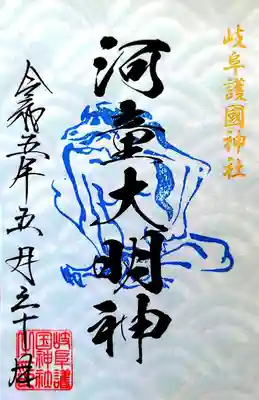 岐阜護國神社
河童大明神
令和五年五月三十一日
岐阜護
国神社